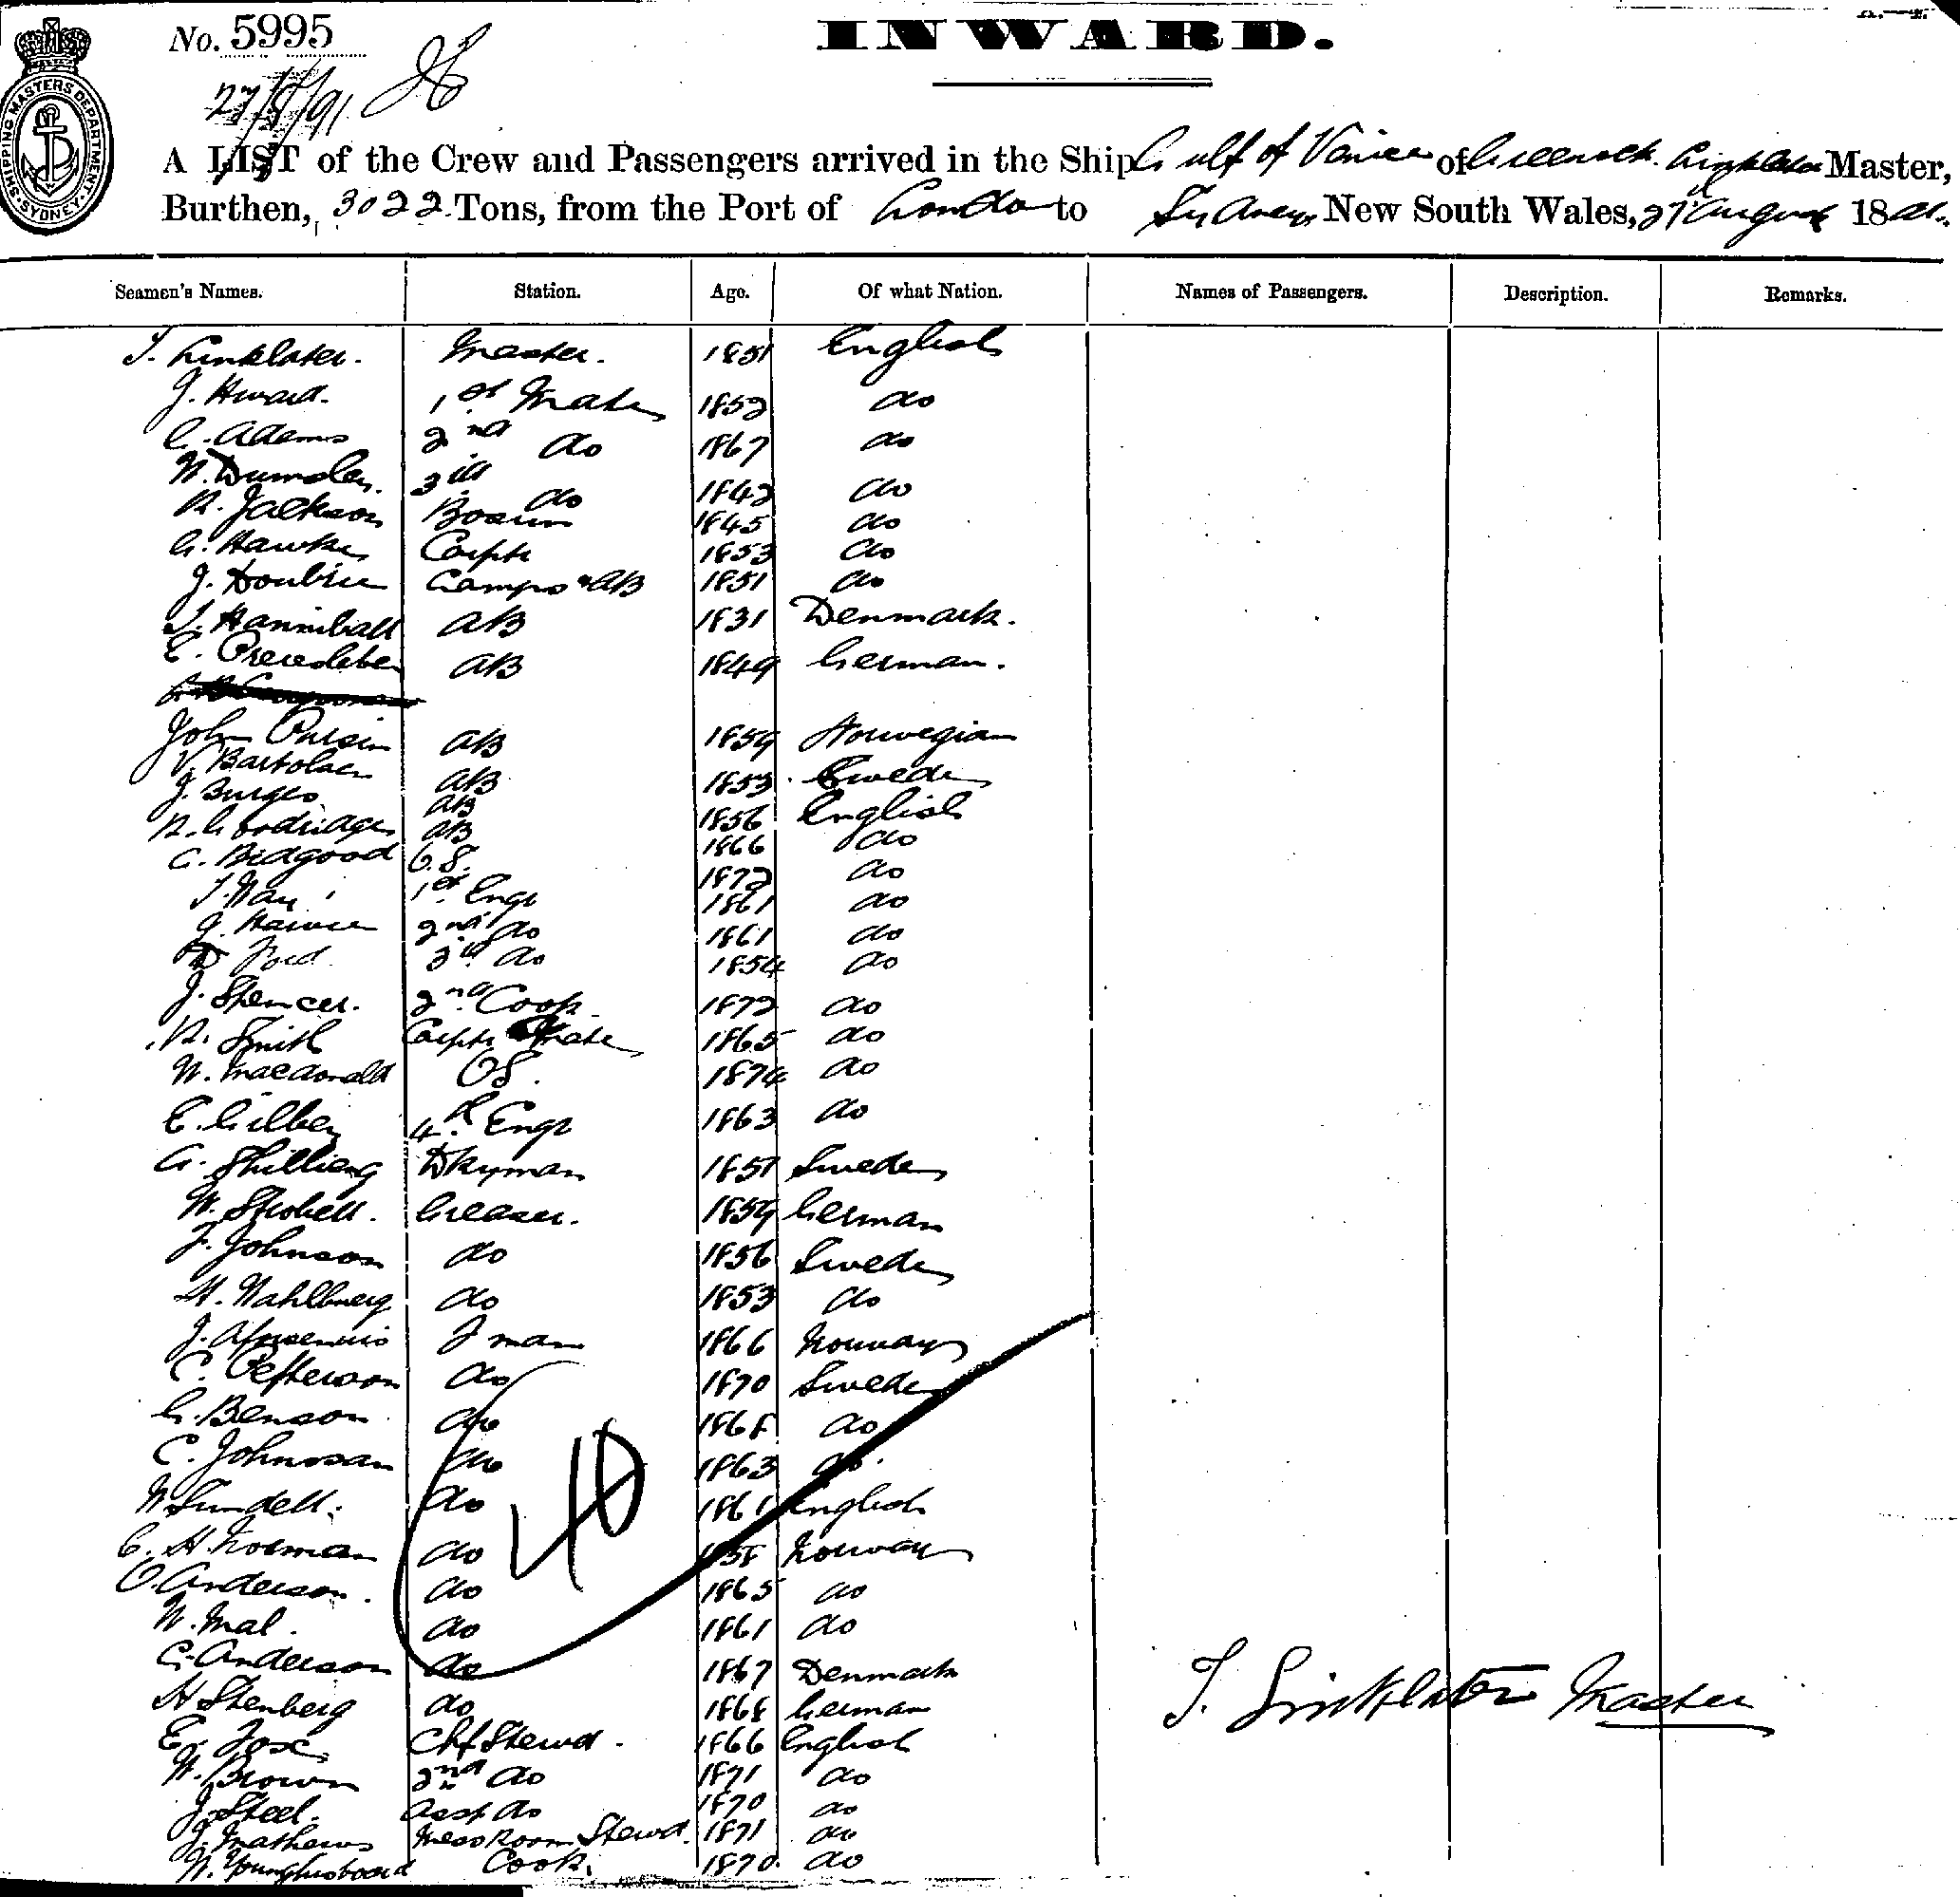 No. 5995
INWARD.
27/8/91
SHIPPING MASTERS DEPARTMENT SYDNEY
A LIST of the Crew and Passengers arrived in the Ship Gulf of Venice of Greenock. Linklater Master,
Burthen, 3022 Tons, from the Port of London to Sydney New South Wales, 27 August 1891.
Seamen's Names. Station. Age. Of what Nation. Names of Passengers. Description. Remarks.
T. Linklater. Master. 1851 English
J. Howard. 1st Mate 1852 do
C. Adams 2nd do 1867 do
W. 3rd do 1842 do
R. Jackson Bosun 1845 do
G. Hawke Carptr 1853 do
J. Lamps & AB 1851 do
J. Hanniball AB 1831 Denmark.
E. AB 1849 German.
John AB 1859 Norwegian
V. AB 1853 Sweden
J. Burges AB 1856 English
R. Goodridge AB 1866 do
C. Bidgood O.S. 1872 do
J. Way 1st Engr 1861 do
G. 2nd do 1861 do
D Ford 3rd do 1854 do
J. Spencer. 2nd Cook 1872 do
R. Smith Carptr Mate 1865 do
W. Macdonald OS. 1874 do
E. Gilbey 4th Engr 1863 do
A. Dkyman 1857 Sweden
W. Strobell. Greaser. 1859 German
F. Johnson do 1856 Sweden
H. Wahlberg do 1853 do
J. F man 1866 Norway
C. Petterson do 1870 Sweden
G. Benson do 1868 do
C. Johnson do 1863 do.
W. Sundell. do 1861 English
C. H. Norman do 1858 Norway
O. Anderson. do 1865 do
W. Mal. do 1861 do
C. Anderson do 1867 Denmark
H Stenberg do 1868 German
E. Fox Chf Stewd. 1866 English
W. Brown 2nd do 1871 do
J. Steel. Asst do 1870 do
J. Mathews Mess Room Stewd. 1871 do
W. Younghusband Cook. 1870. do
40
T. Linklater Master